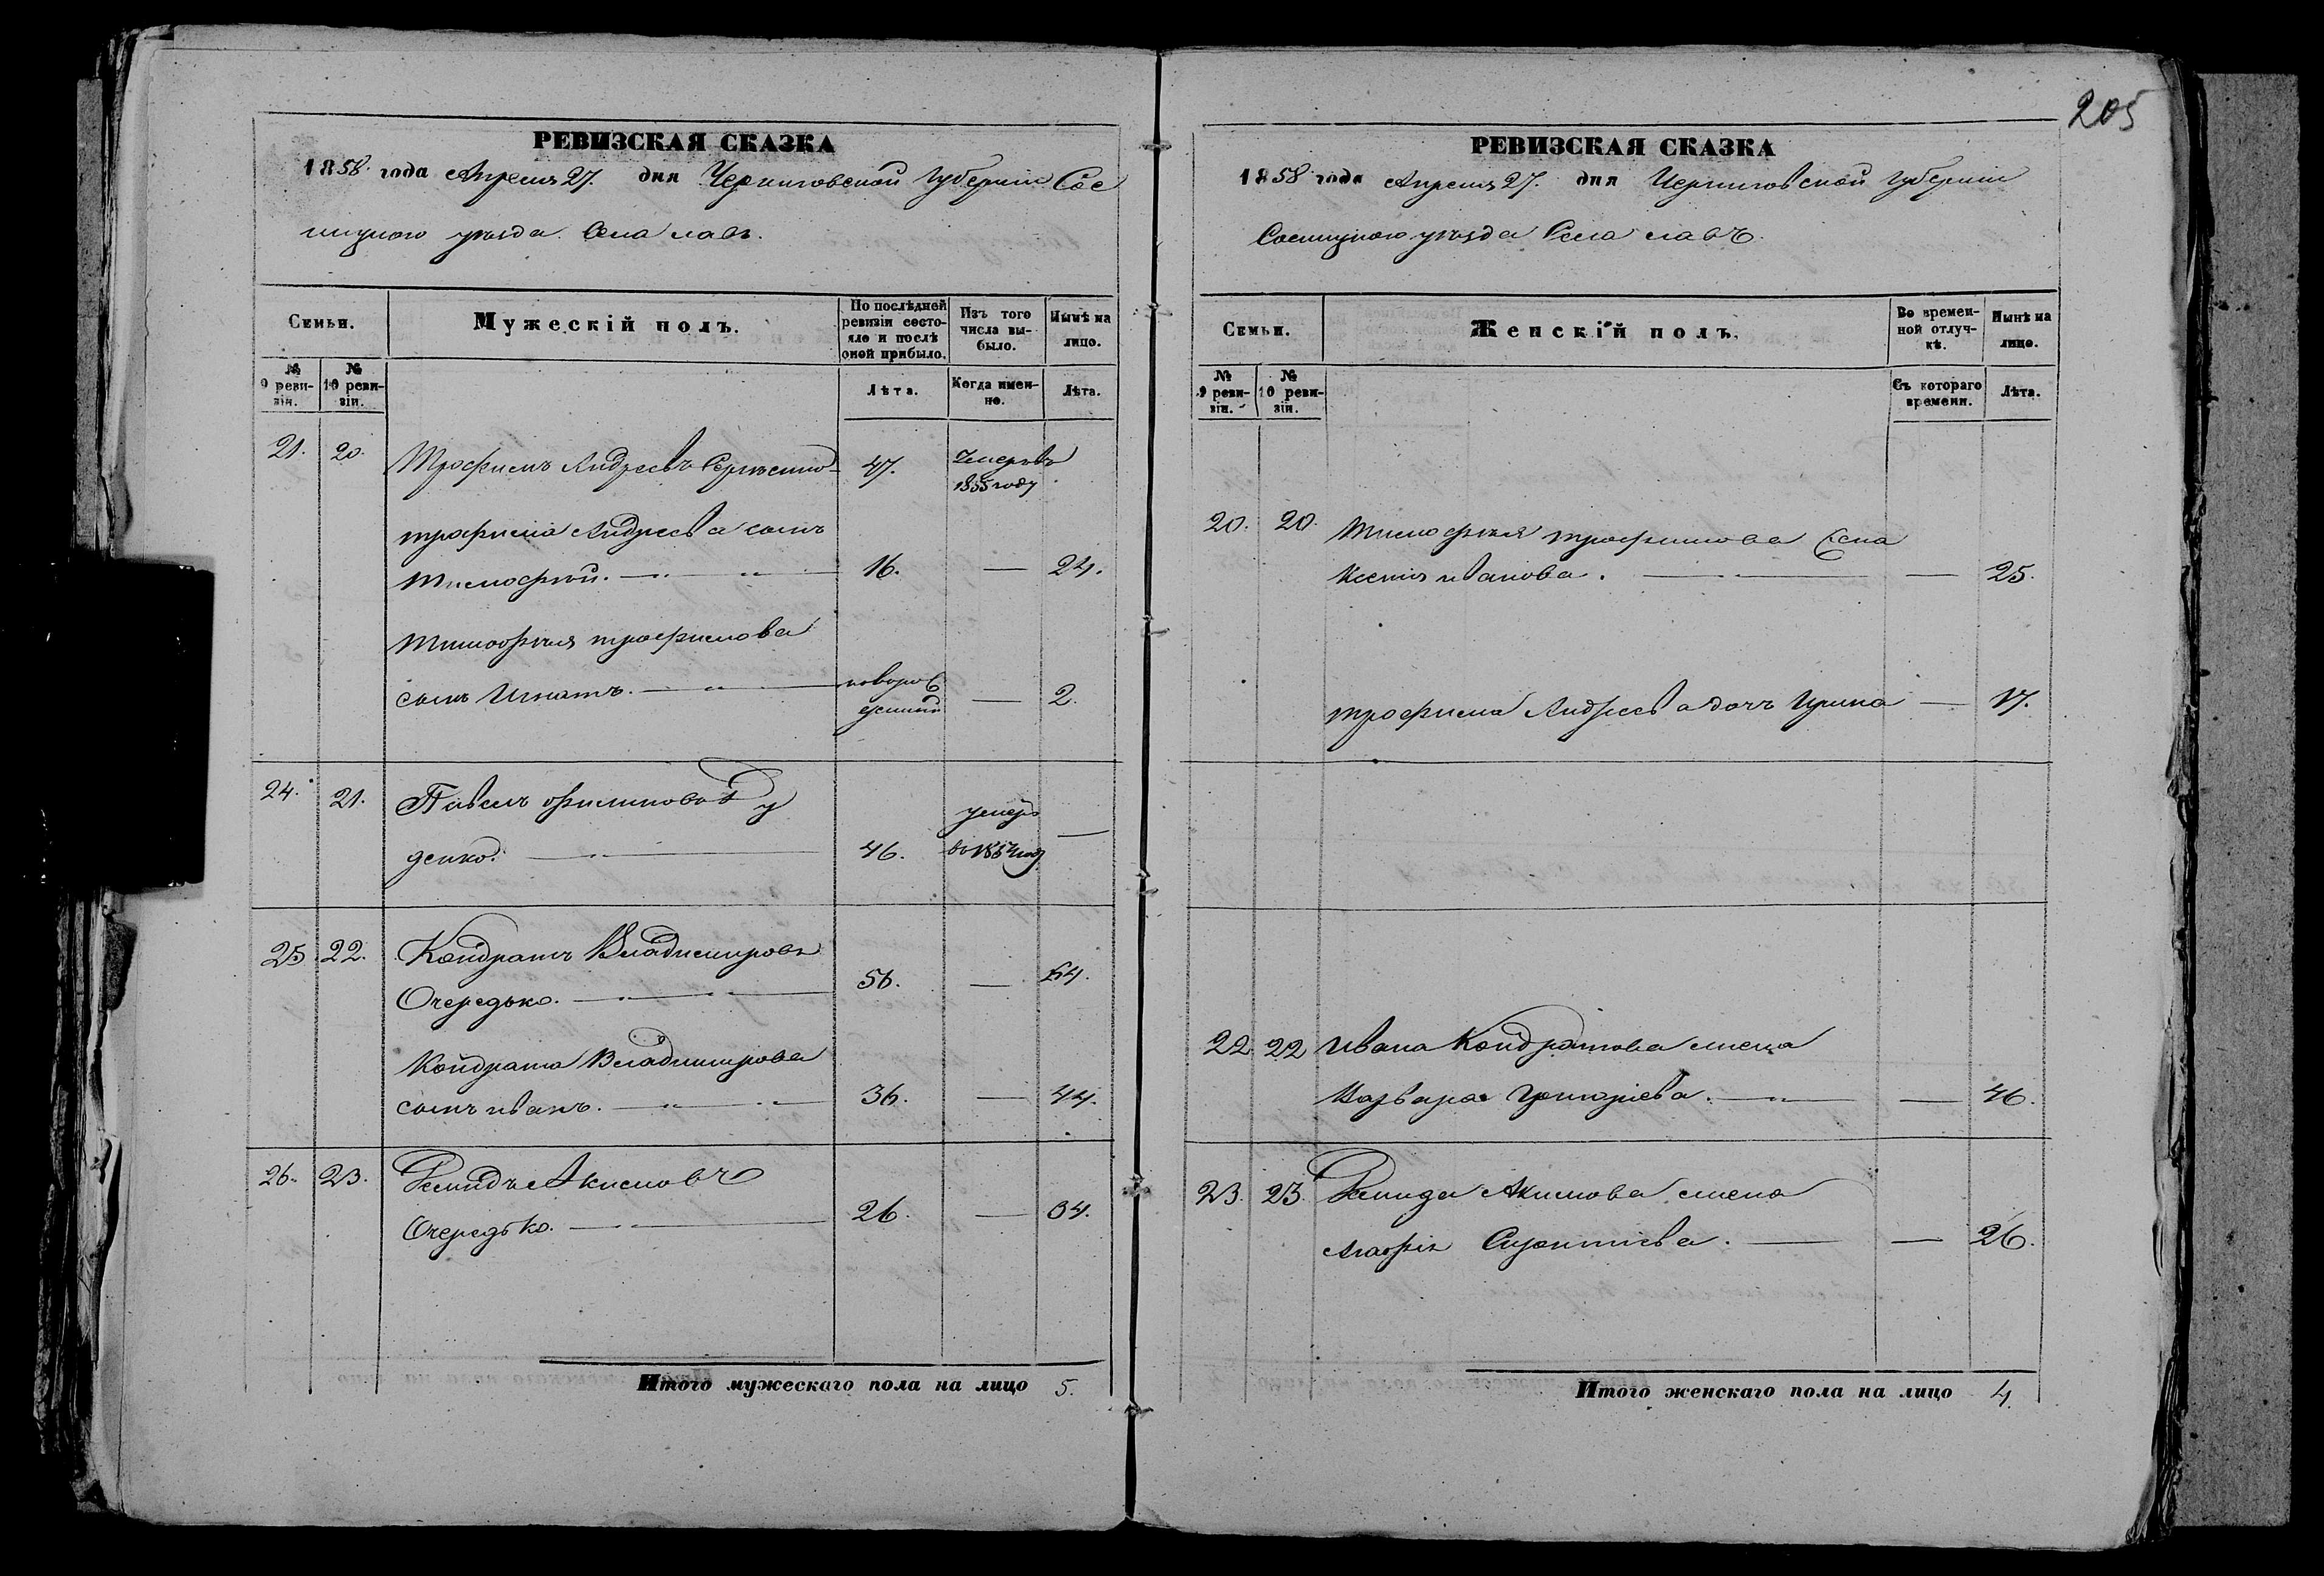 205
РЕВИЗСКАЯ СКАЗКА
1858 года Апреля 27. дня Черниговской губернии Сос
ницкого уезда Села лавъ.
Семьи.
Мужескій полъ.
По послѣдней ревизіи состояло и послѣ оной прибыло.
Изъ того числа выбыло.
Нынѣ на лицо.
№ 9 ревизіи.
№ 10 ревизіи.
Лѣта.
Когда именно.
Лѣта.
21. 20. Трофимъ Андреевъ 47. Умеръ въ
1855 году
трофима Андреева сынъ
Тимофей. 16. — 24.
Тимофея трофимова
сынъ Игнатъ. новорож
денный — 2.
24. 21. Павелъ Филиповъ Ру
денко. 46. умеръ
въ —
25 22. Кондратъ Владимировъ
Очередько. 56. — 64.
Кондрата Владимирова
сынъ иванъ. 36. — 44.
26. 23. Демидъ Акимовъ
Очередько. 26. — 34.
Итого мужескаго пола на лицо 5.
РЕВИЗСКАЯ СКАЗКА
1858 года Апреля 27. дня Черниговской губернии
Сосницкого уезда Села лавъ.
Семьи.
Женскій полъ.
Во временной отлучкѣ.
Нынѣ на лицо.
№ 9 ревизіи.
№ 10 ревизіи.
Съ котораго времени.
Лѣта.
20. 20. Тимофея трофимова жена
Ксения иванова. — 25.
трофима Андреева дочь Ирина — 17.
22. 22 ивана Кондратова жена
Варвара Григориева. — 46.
23. 23. Демида Акимова жена
Агафия — 26.
Итого женскаго пола на лицо 4.